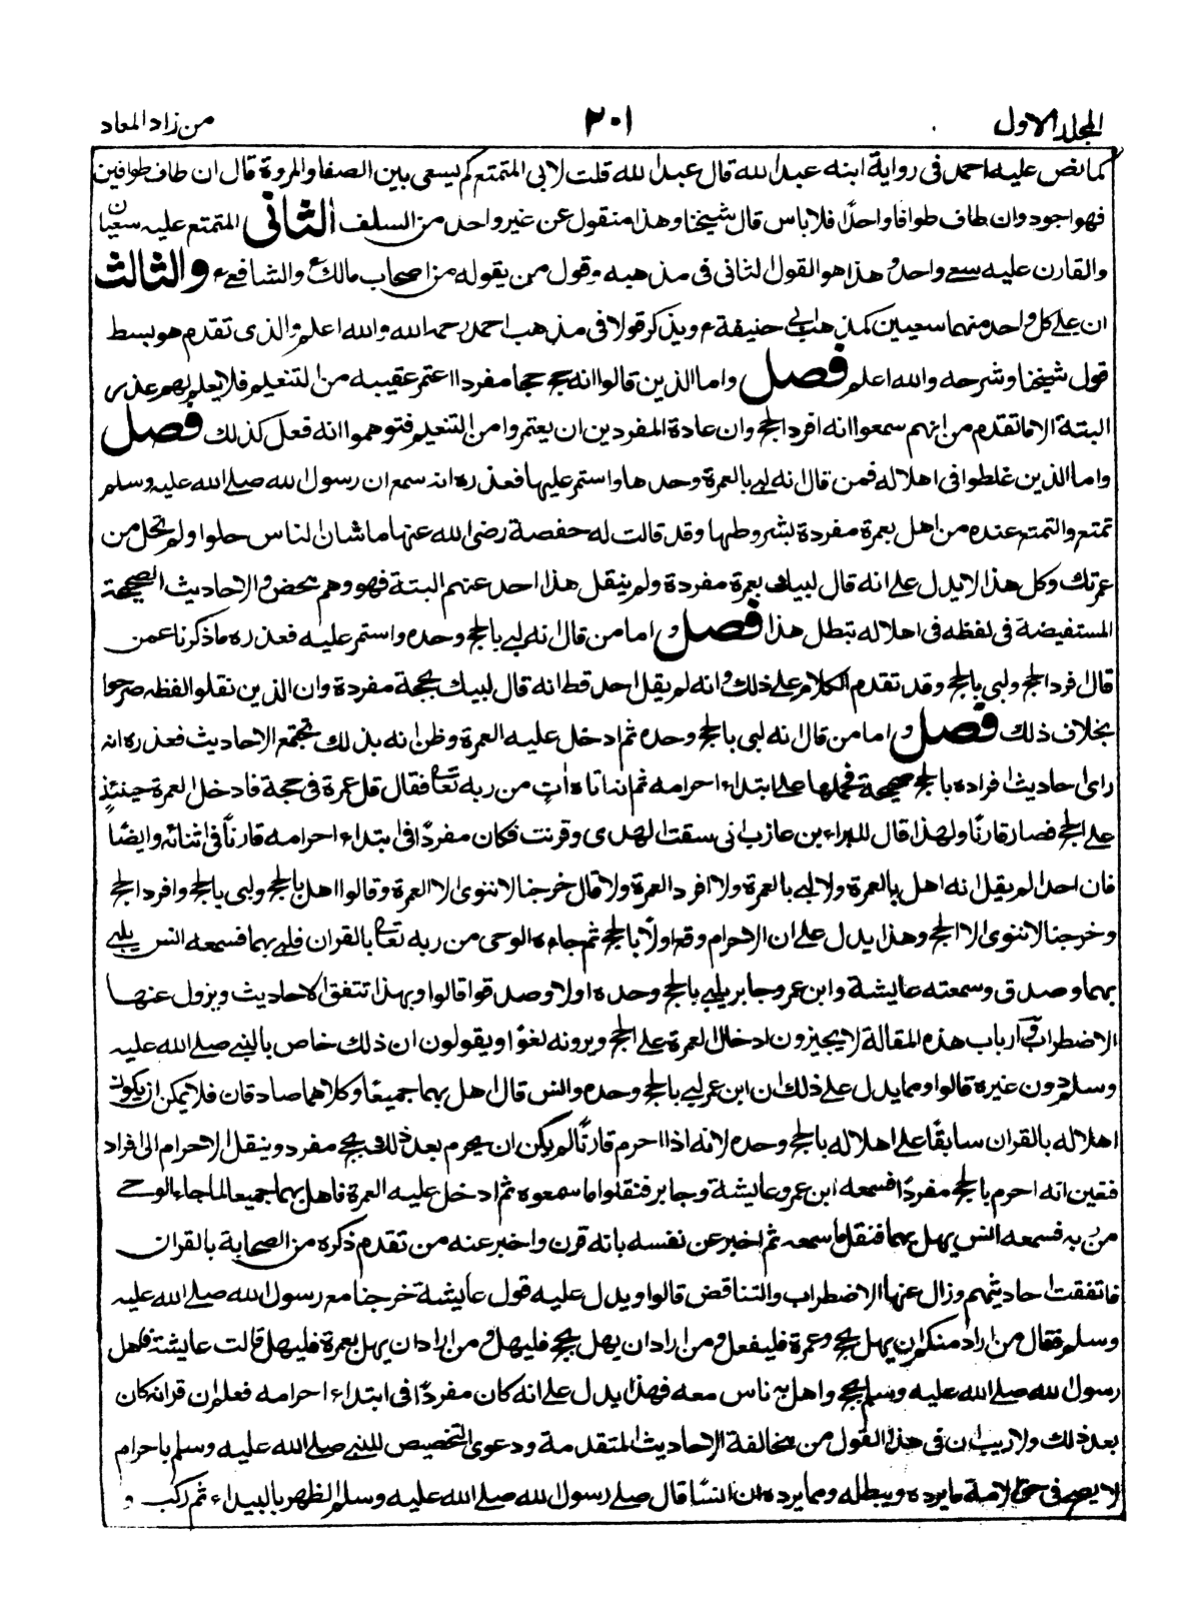 المجلد الاول ٢٠١ من زاد المعاد
كما نص عليه احمد فى رواية ابنه عبد الله قال عبد الله قلت لابى المتمتع كم يسعى بين الصفا والمروة قال ان طاف طوافين
فهو اجود وان طاف طوافا واحدًا فلا باس قال شيخنا وهذا منقول عن غير واحد من السلف الثانى المتمتع عليه سعيان
والقارن عليه سعے واحد و هذا هو القول الثانى فى مذهبه وقول من يقوله من اصحاب مالك والشافعے والثالث
ان علے كل واحد منهما سعيين كمذهب ابى حنيفة ويذكر قولا فى مذهب احمد رحمه الله والله اعلم والذى تقدم هو بسط
قول شيخنا وشرحه والله اعلم فصل واما الذين قالوا انه حج حجا مفردا اعتمر عقيبه من التنعيم فلا يعلم لهم عذر
البتة الا ما تقدم من انهم سمعوا انه افرد الحج وان عادة المفردين ان يعتمروا من التنعيم فتوهموا انه فعل كذلك فصل
واما الذين غلطوا فى اهلاله فمن قال انه لبے بالعمرة وحدها واستمر عليها فعذره انه سمع ان رسول الله صلے الله عليه وسلم
تمتع والتمتع عنده من اهل بعمرة مفردة بشروطها وقد قالت له حفصة رضى الله عنها ما شان الناس حلوا ولم تحل من
عمرتك وكل هذا لا يدل علے انه قال لبيك بعمرة مفردة ولم ينقل هذا احد عنهم البتة فهو وهم محض والاحاديث الصحيحة
المستفيضة فى لفظه فى اهلاله تبطل هذا فصل واما من قال انه لبے بالحج وحده واستمر عليه فعذره ما ذكرنا عمن
قال افرد الحج ولبى بالحج وقد تقدم الكلام علے ذلك وانه لم يقل احد قط انه قال لبيك بحجة مفردة وان الذين نقلوا لفظه صرحوا
بخلاف ذلك فصل واما من قال انه لبى بالحج وحده ثم ادخل عليه العمرة وظن انه بذلك تجتمع الاحاديث فعذره انه
راى احاديث افراده بالحج صحيحة فحملها علے ابتداء احرامه ثم انه اتاه اٰت من ربه تعالے فقال قل عمرة فى حجة فادخل العمرة حينئذٍ
علے الحج فصار قارنًا ولهذا قال للبراء بن عازب انى سقت الهدى وقرنت فكان مفردًا فى ابتداء احرامه قارنًا فى اثنائه وايضًا
فان احدا لم يقل انه اهل بالعمرة ولا لبے بالعمرة ولا افرد العمرة ولا قال خرجنا لا ننوى الا العمرة وقالوا اهل بالحج ولبى بالحج وافرد الحج
وخرجنا لا ننوى الا الحج وهذا يدل علے ان الاحرام وقع اولًا بالحج ثم جاءه الوحى من ربه تعالے بالقران فلبے بهما فسمعه انس يلبے
بهما وصدق وسمعته عايشة وابن عمر وجابر يلبے بالحج وحده اولا وصدقوا قالوا وبهذا تتفق الاحاديث ويزول عنها
الاضطراب وارباب هذه المقالة لا يجيزون ادخال العمرة علے الحج ويرونه لغوًا ويقولون ان ذلك خاص بالنبے صلے الله عليه
وسلم دون غيره قالوا ومما يدل علے ذلك ان ابن عمر لبے بالحج وحده وانس قال اهل بهما جميعًا وكلاهما صادقان فلا يمكن ان يكون
اهلاله بالقران سابقًا علے اهلاله بالحج وحده لانه اذا احرم قارنًا لم يكن ان يحرم بعد ذلك بحج مفرد وينقل الاحرام الى افراد
فتعين انه احرم بالحج مفردًا فسمعه ابن عمر وعايشة وجابر فنقلوا ما سمعوه ثم ادخل عليه العمرة فاهل بهما جميعا لما جاءه الوحے
من ربه فسمعه انس يهل بهما فنقل ما سمعه ثم اخبر عن نفسه بانه قرن واخبر عنه من تقدم ذكره من الصحابة بالقران
فاتفقت احاديثهم وزال عنها الاضطراب والتناقض قالوا ويدل عليه قول عايشة خرجنا مع رسول الله صلے الله عليه
وسلم فقال من اراد منكم ان يهل بحج وعمرة فليفعل ومن اراد ان يهل بحج فليهل ومن اراد ان يهل بعمرة فليهل قالت عايشة فاهل
رسول الله صلے الله عليه وسلم بحج واهل به ناس معه فهذا يدل علے انه كان مفردًا فى ابتداء احرامه فعلم ان قرانه كان
بعد ذلك ولا ريب ان فى هذا القول من مخالفة الاحاديث المتقدمة ودعوى التخصيص للنبے صلے الله عليه وسلم باحرام
لا يصح فى حق الامة ما يرده ويبطله ومما يرده ان انسًا قال صلے رسول الله صلے الله عليه وسلم الظهر بالبيداء ثم ركب و